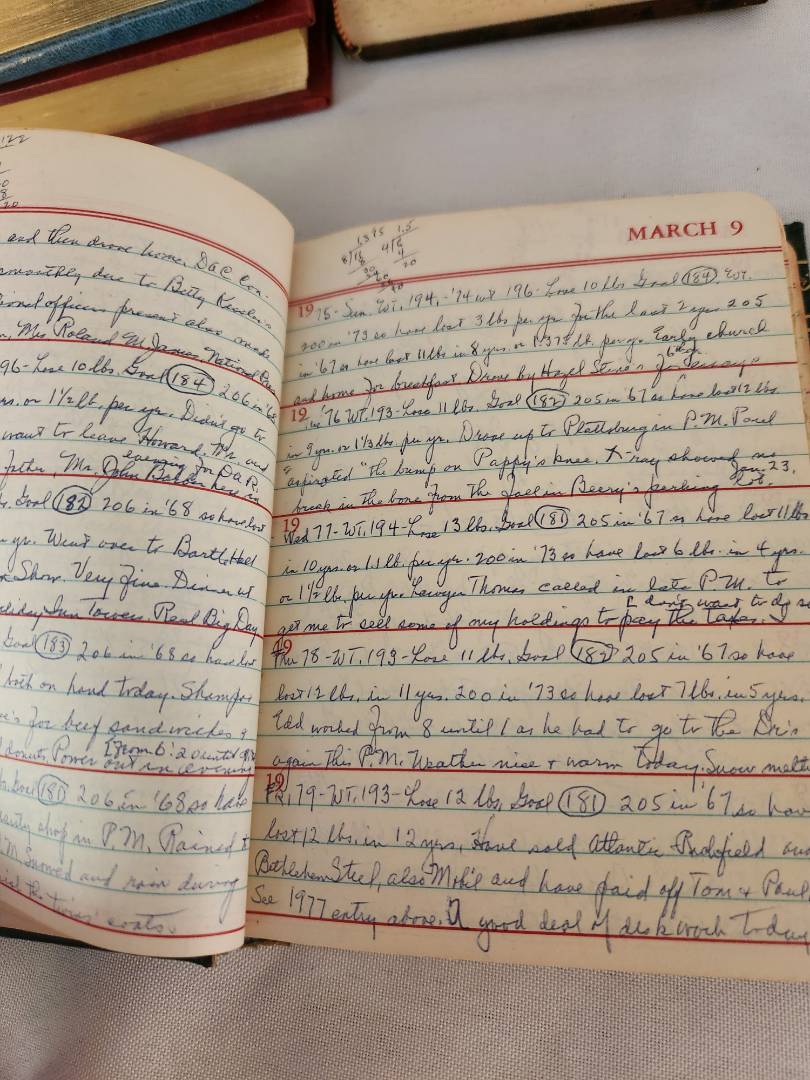 122
20
and then drove home. DAC Con.
smoothly due to Betty
officers present also made
Mrs Roland M. James, National
96-Lose 10 lbs. Goal 184 206 in '68
yrs. or 1 1/2 lb. per yr. Didn't go to
want to leave Howard. Mr. and
evening for D.A.R.
Mr. John
Goal 182 206 in '68 so have lost
yr. Went over to Bartlett
Show. Very fine. Dinner at
Holiday Inn Tower. Real Big Day
Goal 183 206 in '68 so have lost
both on hand today.
for beef sandwiches &
donuts. Power out in evening
from 6:20 until
Goal 181 206 in '68 so have
beauty shop in P.M. Rained &
P.M. Snowed and rain during
the coats.
MARCH 9
1975-Sun. WT. 194, -'74 wt 196-Lose 10 lbs Goal 184. WT.
200 in '73 so have lost 3 lbs per yr. for the last 2 yrs. 205
in '67 so have lost 11 lbs in 8 yrs. or 1.375 lb. per yr. Early church
and home for breakfast Drove by Hazel for
19 in '76 WT. 193-Lose 11 lbs. Goal 182 205 in '67 so have lost 12 lbs
in 9 yrs. or 1 1/3 lbs. per yr. Drove up to Plattsburg in P.M. Paul
"aspirated" the bump on Pappy's knee. X-ray showed no
break in the bone from the fall in Beery's parking lot.
Jan. 23.
19 Wed 77-WT. 194-Lose 13 lbs. Goal 181 205 in '67 so have lost 11 lbs
in 10 yrs. or 1.1 lb. per yr. 200 in '73 so have lost 6 lbs. in 4 yrs.
or 1 1/2 lb. per yr. Lawyer Thomas called in late P.M. to
get me to sell some of my holdings to pay the taxes.
I don't want to do so
19 Thu 78-WT. 193-Lose 11 lbs. Goal 182 205 in '67 so have
lost 12 lbs. in 11 yrs. 200 in '73 so have lost 7 lbs. in 5 yrs.
Edd worked from 8 until 1 as he had to go to the Dr's
again this P.M. Weather nice & warm today. Snow
19 Fri, 79-WT. 193-Lose 12 lbs, Goal 181 205 in '67 so have
lost 12 lbs. in 12 yrs. Have sold Atlantic Richfield and
Bethlehem Steel, also Mobil and have paid off Tom & Paul.
See 1977 entry above. A good deal of desk work today